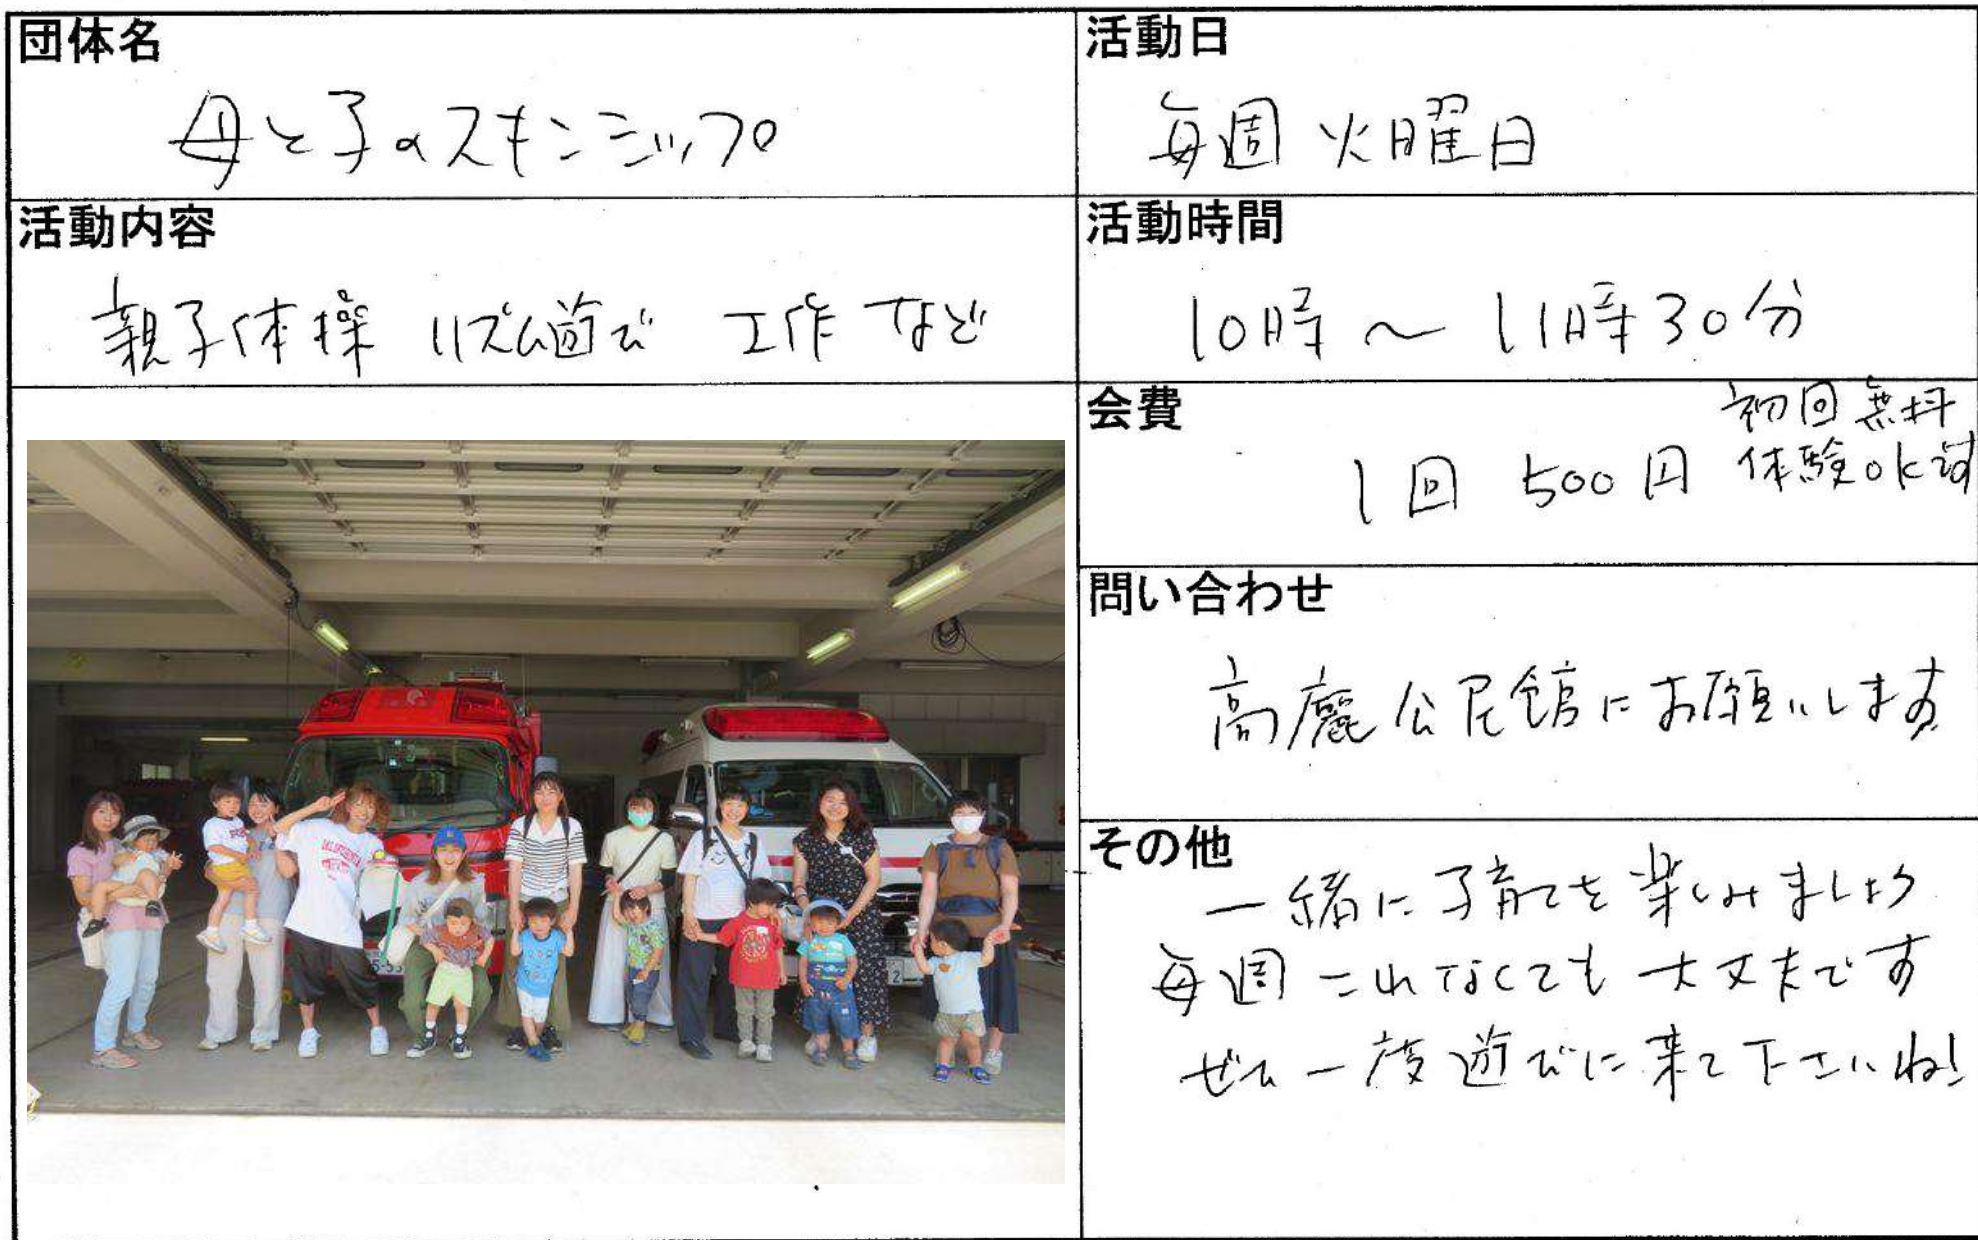 団体名
母と子のスキンシップ
活動内容
親子体操 リズム遊び 工作 など
活動日
毎週 火曜日
活動時間
10時 ~ 11時30分
会費
初回無料
1回 500円 体験ok
問い合わせ
高麗公民館にお願いします
その他
一緒に子育てを楽しみましょう
毎週これなくても大丈夫です
ぜひ一度遊びに来て下さいね!